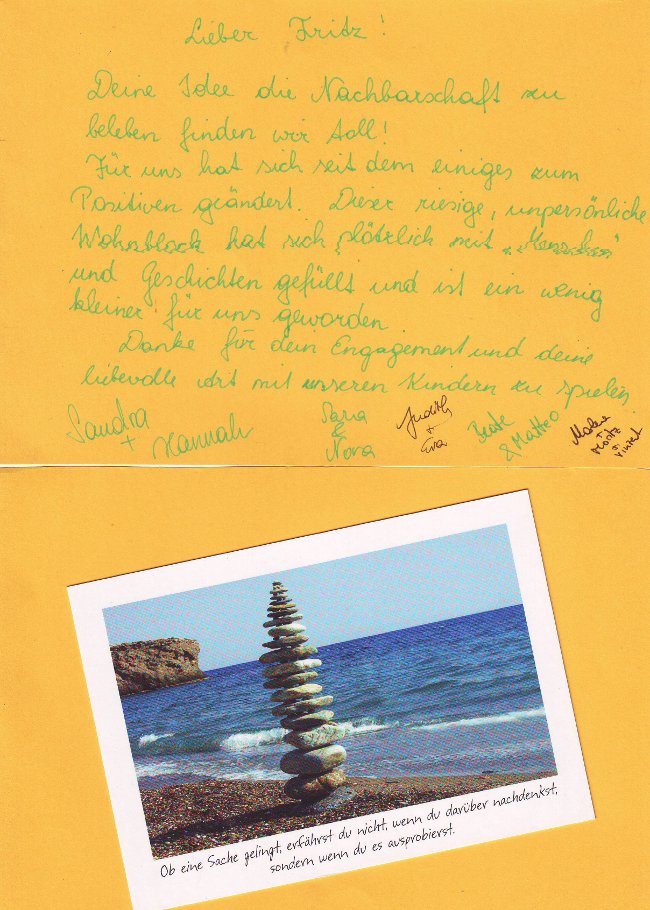 Lieber Fritz!
Deine Idee die Nachbarschaft zu
beleben finden wir toll!
Für uns hat sich seit dem einiges zum
Positiven geändert. Dieser riesige, unpersönliche
Wohnblock hat sich plötzlich mit „Menschen"
und Geschichten gefüllt und ist ein wenig
kleiner für uns geworden
Danke für dein Engagement und deine
liebevolle Art mit unseren Kindern zu spielen
Sandra
+
Hannah
&
Nora
Judith
+
Eva
Beate
& Matteo
+
Moritz
Ob eine Sache gelingt, erfährst du nicht, wenn du darüber nachdenkst,
sondern wenn du es ausprobierst.